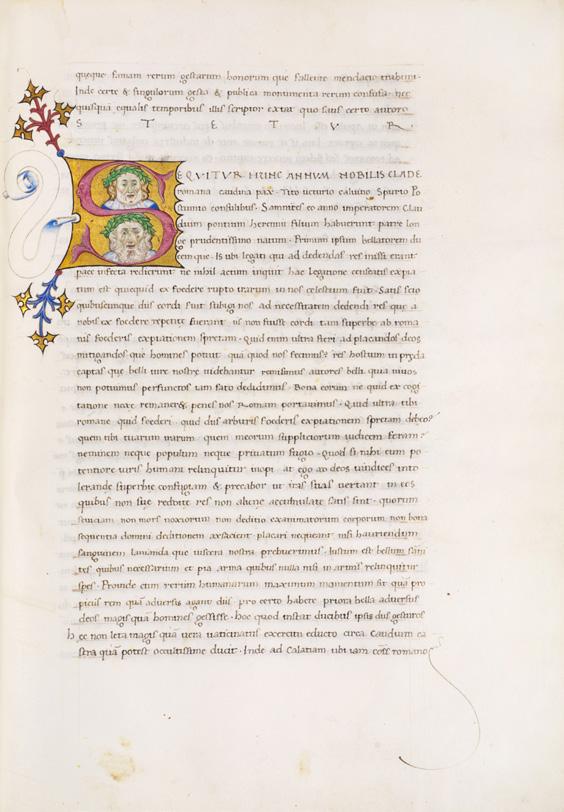 queque famam rerum gestarum honorum que fallente mendacio trahunt.
Inde certe & singulorum gesta & publica monumenta rerum confusa. nec
quisquam equalis temporibus illis scriptor extat quo satis certo autore
S T E T V R
SEQVITVR HVNC ANNVM NOBILIS CLADE
romana caudina pax. Tito veturio calvino Spurio Po
stumio consulibus. Samnites eo anno imperatorem Clau
dium pontium herennii filium habuerunt parte lon
ge prudentissimo natum. Primum ipsum bellatorem du
cemque. Is ubi legati qui ad dedendas res missi erant
pace infecta redierunt ne nihil actum inquit hac legatione censeatis expia
tum est quicquid ex foedere rupto irarum in nos celestium fuit. Satis scio
quibuscumque diis cordi fuit subigi nos ad necessitatem dedendi res que a
nobis ex foedere repetite fuerant. iis non fuisse cordi tam superbe ab roma
nis foederis expiationem spretam. Quid enim ultra fieri ad placandos deos
mitigandos que homines potuit. qua quod nos fecimus? res hostium in preda
captas que belli iure nostre videbantur remisimus autores belli. quia vivos
non potuimus perfunctos iam fato dedidimus. Bona eorum ne quid ex cogi
tatione noxe remaneret penes nos Romam portavimus. Quid ultra tibi
romane quid foederi. quid diis arbitris foederis expiationem spretam debeo?
quem tibi tuarum irarum. quem meorum suppliciorum iudicem feram?
neminem neque populum neque privatum fugio. Quod si nihil cum po
tentiore iuris humani relinquitur inopi. at ego ad deos vindices into
lerande superbie confugiam & precabor ut iras suas vertant in eos
quibus non sue reddite res non aliene accumulate satis sint. quorum
seviciam non mors noxiorum non deditio exanimatorum corporum non bona
sequentia domini deditionem exsacient. placari nequeant nisi hauriendum
sanguinem laniandaque viscera nostra prebuerimus. Iustum est bellum sam
tes quibus necessarium et pia arma quibus nulla nisi in armis relinquitur
spes. Proinde cum rerum humanarum maximum momentum sit quam pro
piciis rem quam adversis agant diis. pro certo habete priora bella adversus
deos magis quam homines gessisse. hoc quod instat ducibus ipsis diis gesturos
hec non leta magis quam vera vaticinatus exercitu educto circa Caudium ca
stra quam potest occultissime ducit. Inde ad Calatiam ubi iam coss romanos